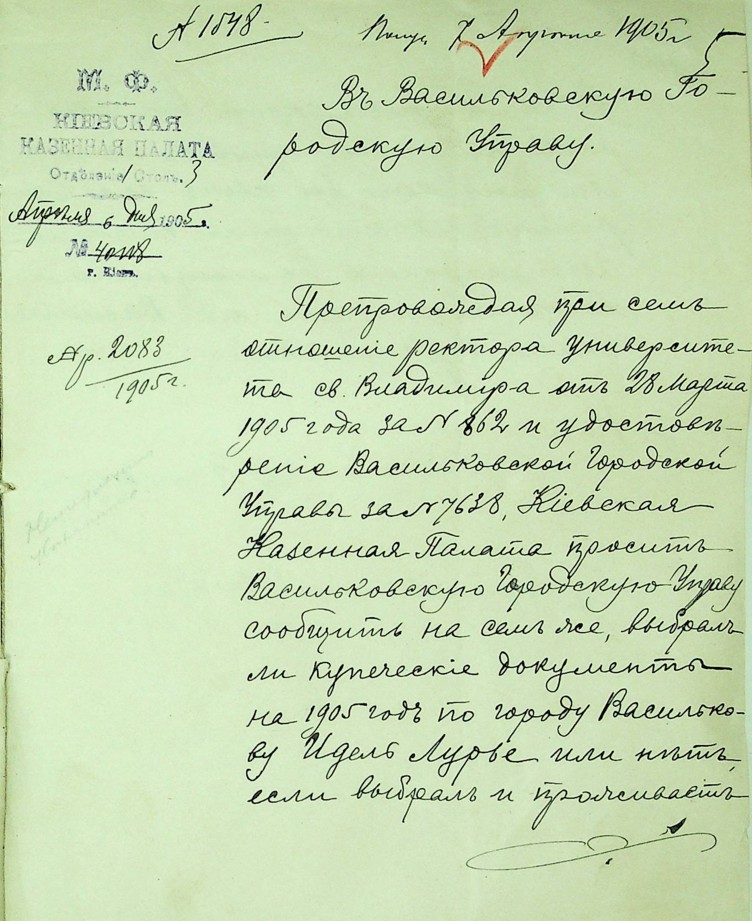 № 1548.
Получ. 7 Апреля 1905 г
Въ Васильковскую Го-
родскую Управу.
М. Ф.
КІЕВСКАЯ
КАЗЕННАЯ ПАЛАТА
Отдѣленіе 1 Столъ 3
Апрѣля 6 дня 1905 г.
№
г. Кіевъ.
Ар. 2083
1905 г.
Препровождая при семъ
отношеніе ректора университе-
та св. Владимира отъ 28 Марта
1905 года за N 862 и удостовѣ-
реніе Васильковской Городской
Управы за N 7638, Кіевская
Казенная Палата проситъ
Васильковскую Городскую Управу
сообщить на семъ же, выбралъ
ли купеческіе документы
на 1905 годъ по городу Василько-
ву Идель Лурье или нѣтъ,
если выбралъ и проживаетъ